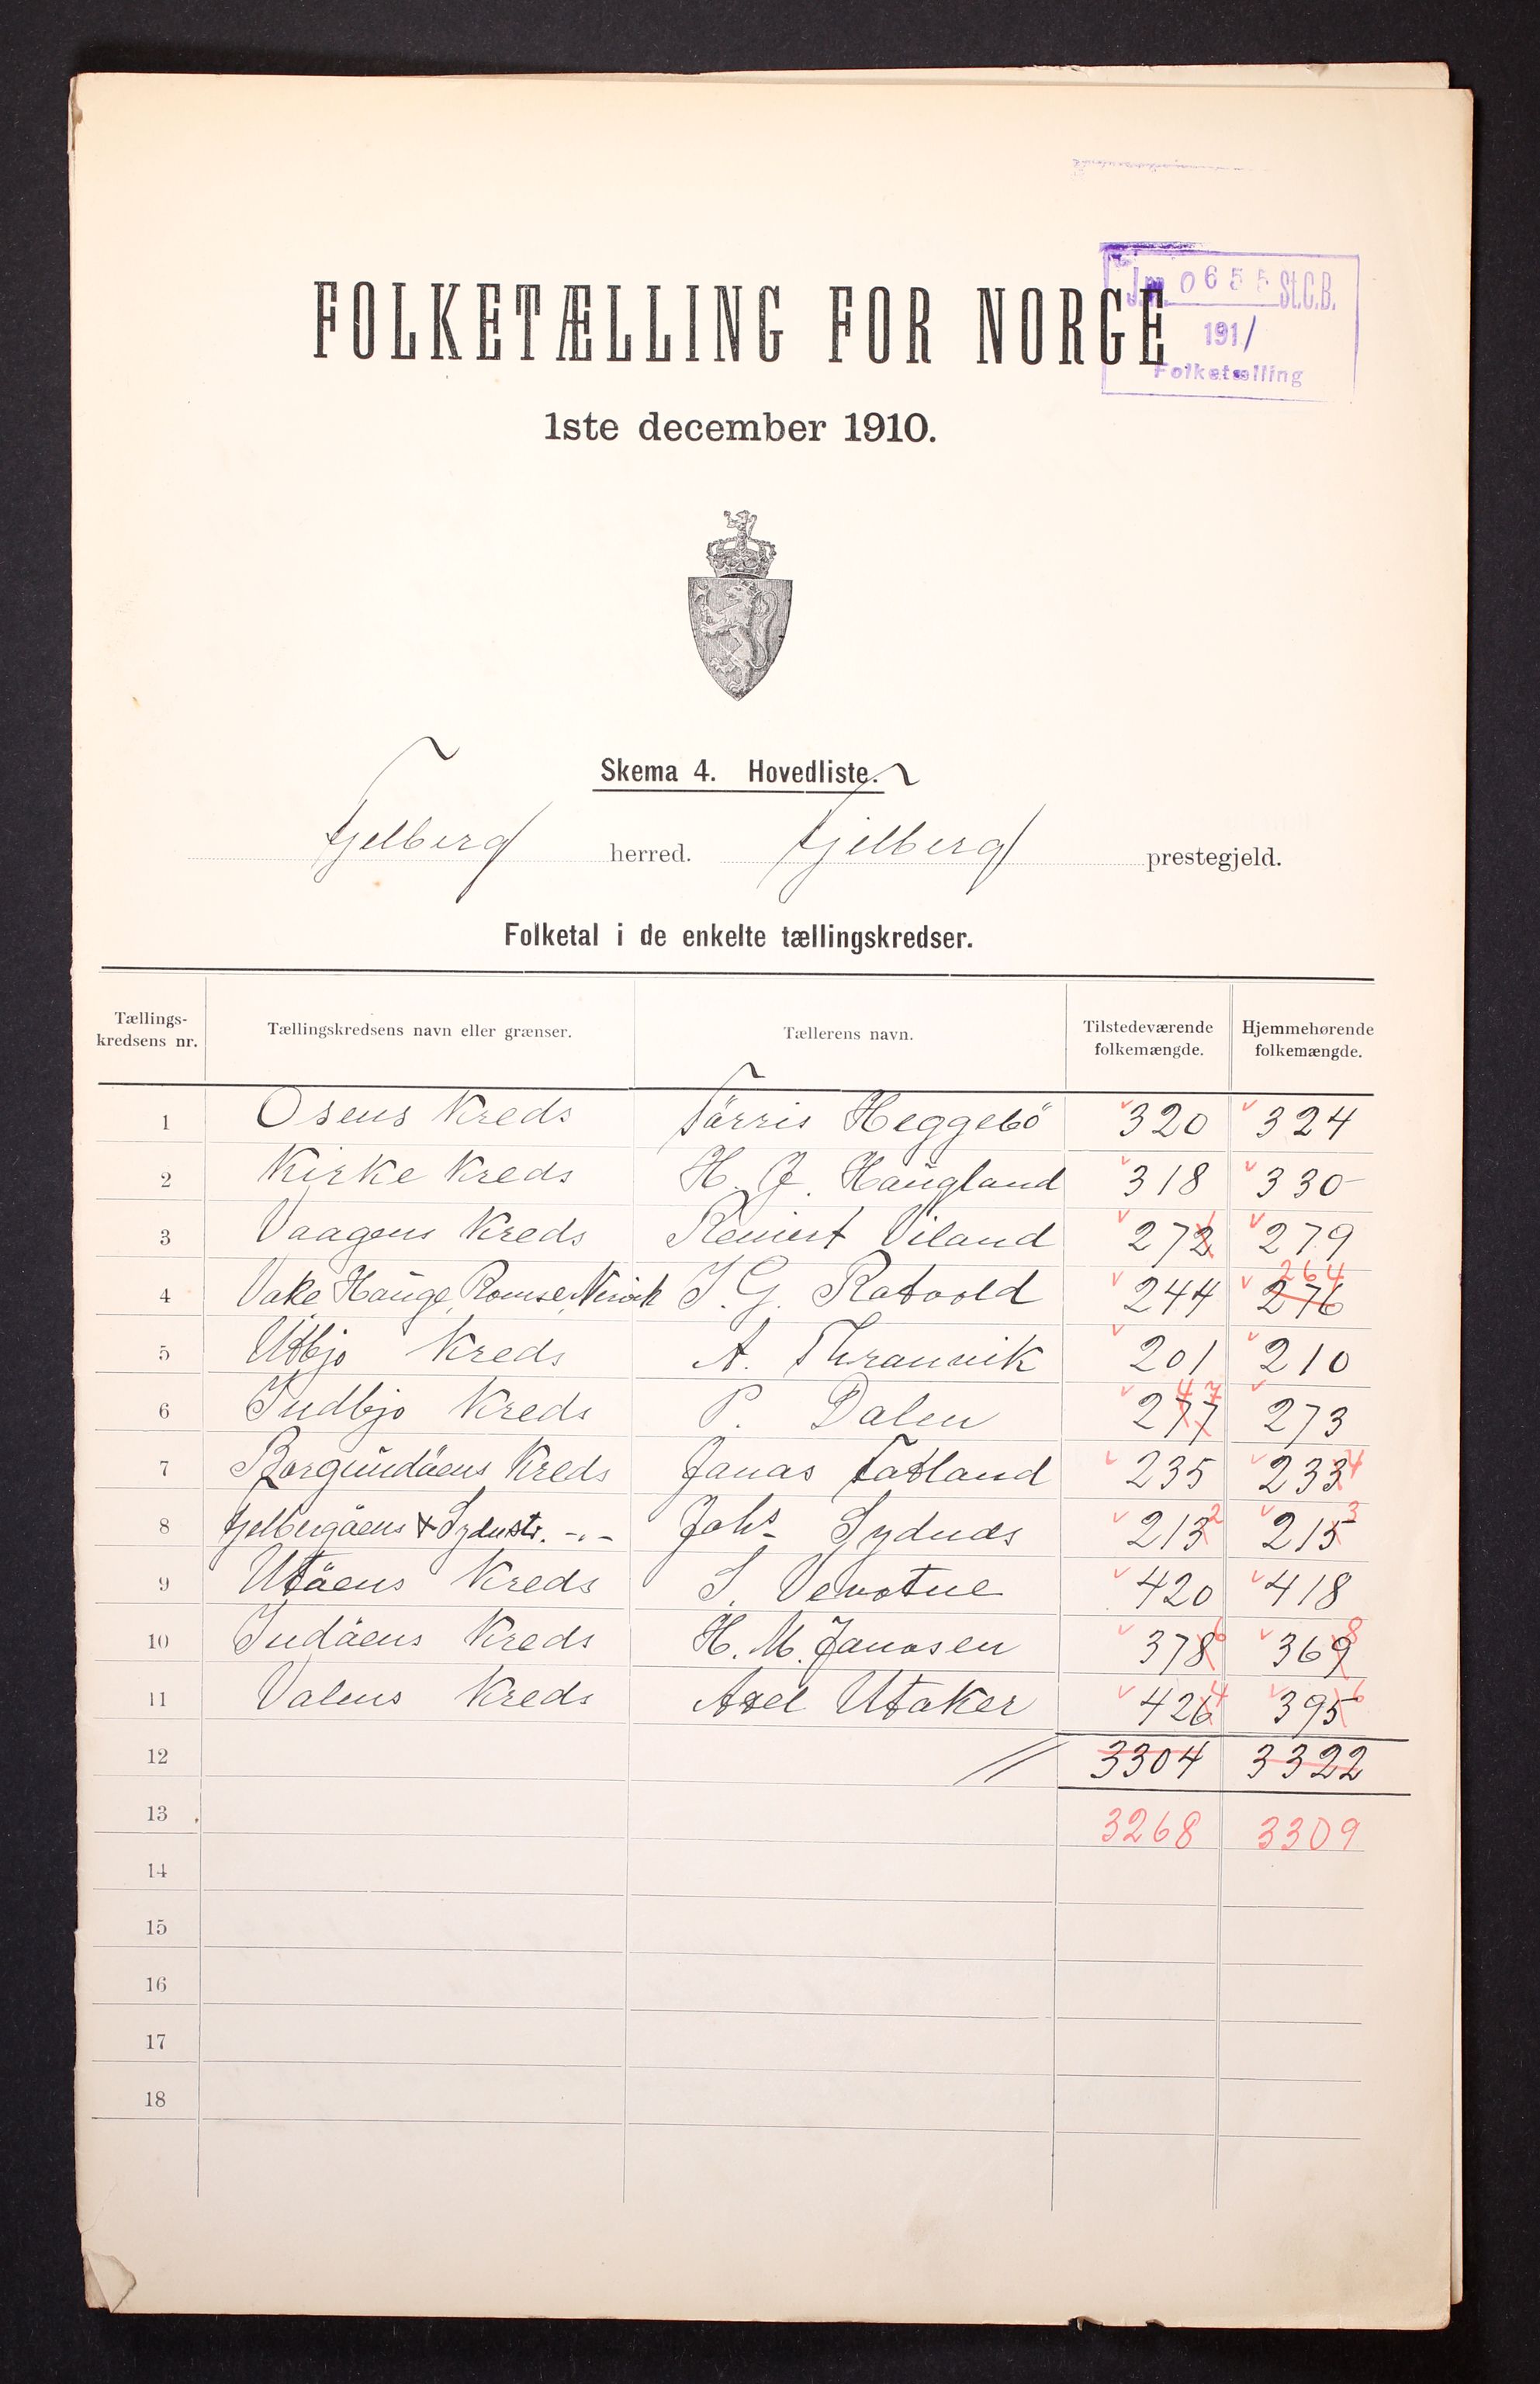 J.nr. 0655 St.C.B.
1911
Folketælling
FOLKETÆLLING FOR NORGE
1ste december 1910.
Skema 4. Hovedliste.
Fjelberg herred. Fjelberg prestegjeld.
Folketal i de enkelte tællingskredser.
Tællings-kredsens nr. Tællingskredsens navn eller grænser. Tællerens navn. Tilstedeværende folkemængde. Hjemmehørende folkemængde.
1 Osens Kreds Törris Heggebö 320 324
2 Kirke Kreds H. J. Haugland 318 330
3 Vaagens Kreds Reinert Viland 272 1 279
4 Vake, Hauge, Romse, Nervik T. G. Røtvold 244 276 264
5 Utbjo Kreds A. Thranvik 201 210
6 Indbjo Kreds P. Dalen 277 47 273
7 Borgundöens Kreds Jonas Tatland 235 233 4
8 Fjelbergöens & Sydnstr. -"- Johs Sydnes 213 2 215 3
9 Utöens Kreds S. Vevatne 420 418
10 Indöens Kreds H. M. Janosen 378 6 369 8
11 Valens Kreds Axel Utaker 426 4 395 6
12 3304 3322
13 3268 3309
14
15
16
17
18